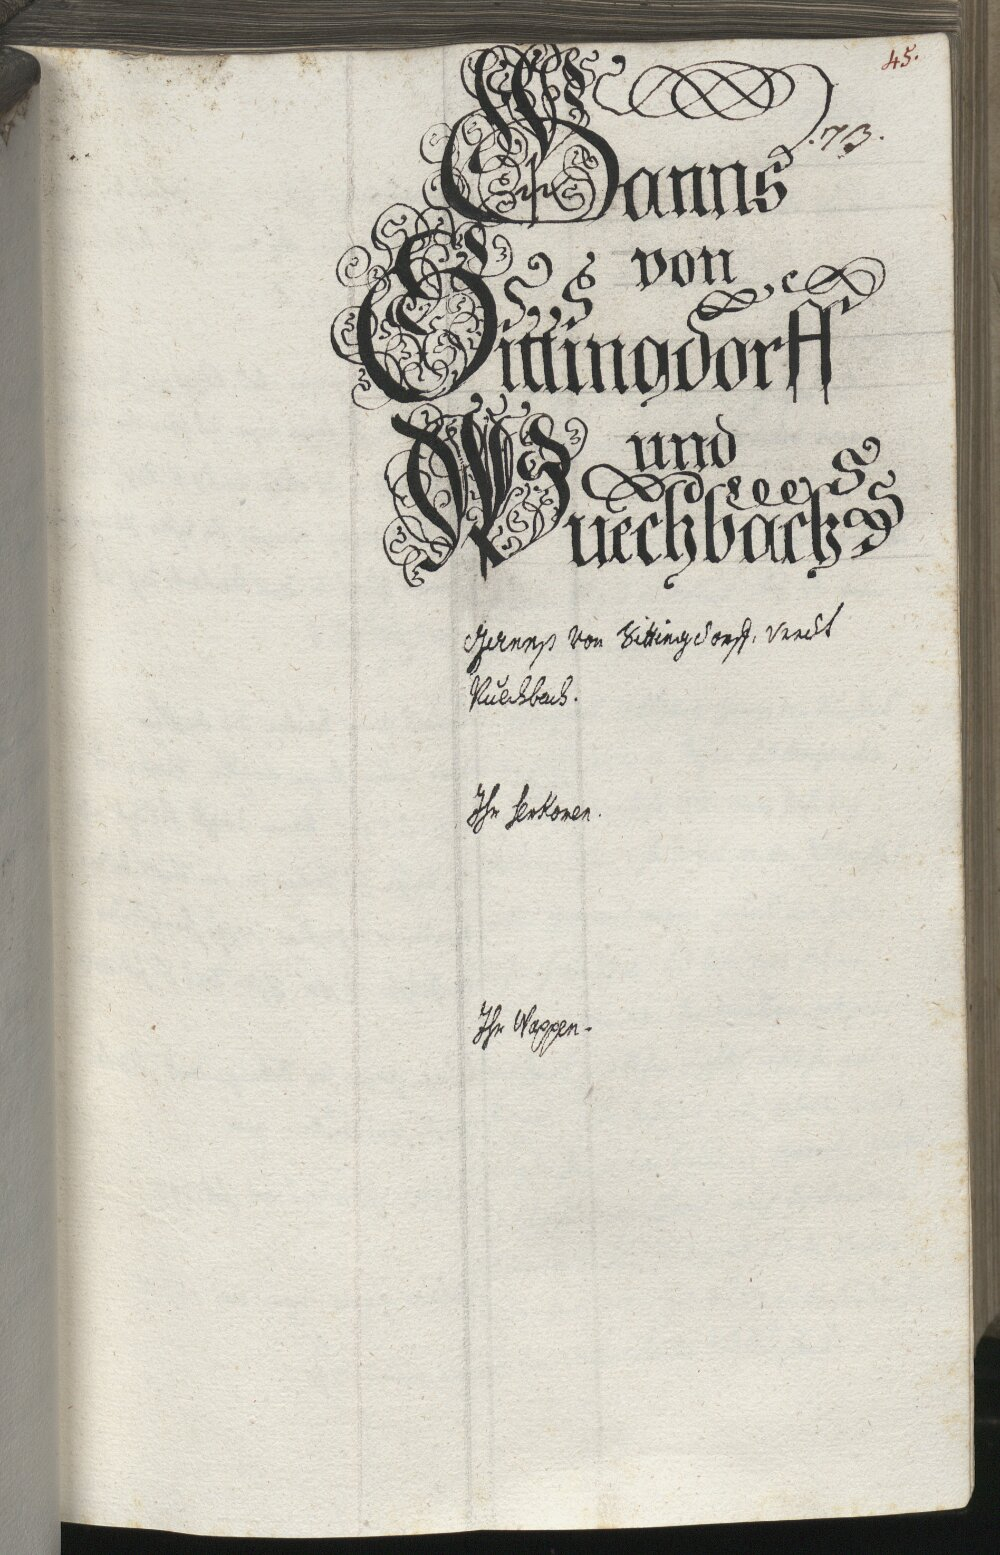 45.
.73.
Hanns
von
Sittingdorff
und
Puechbach
Hannß von Sittingdorff, vnndt
Puechbach.
Ihr herkomen.
Ihr Wappen.